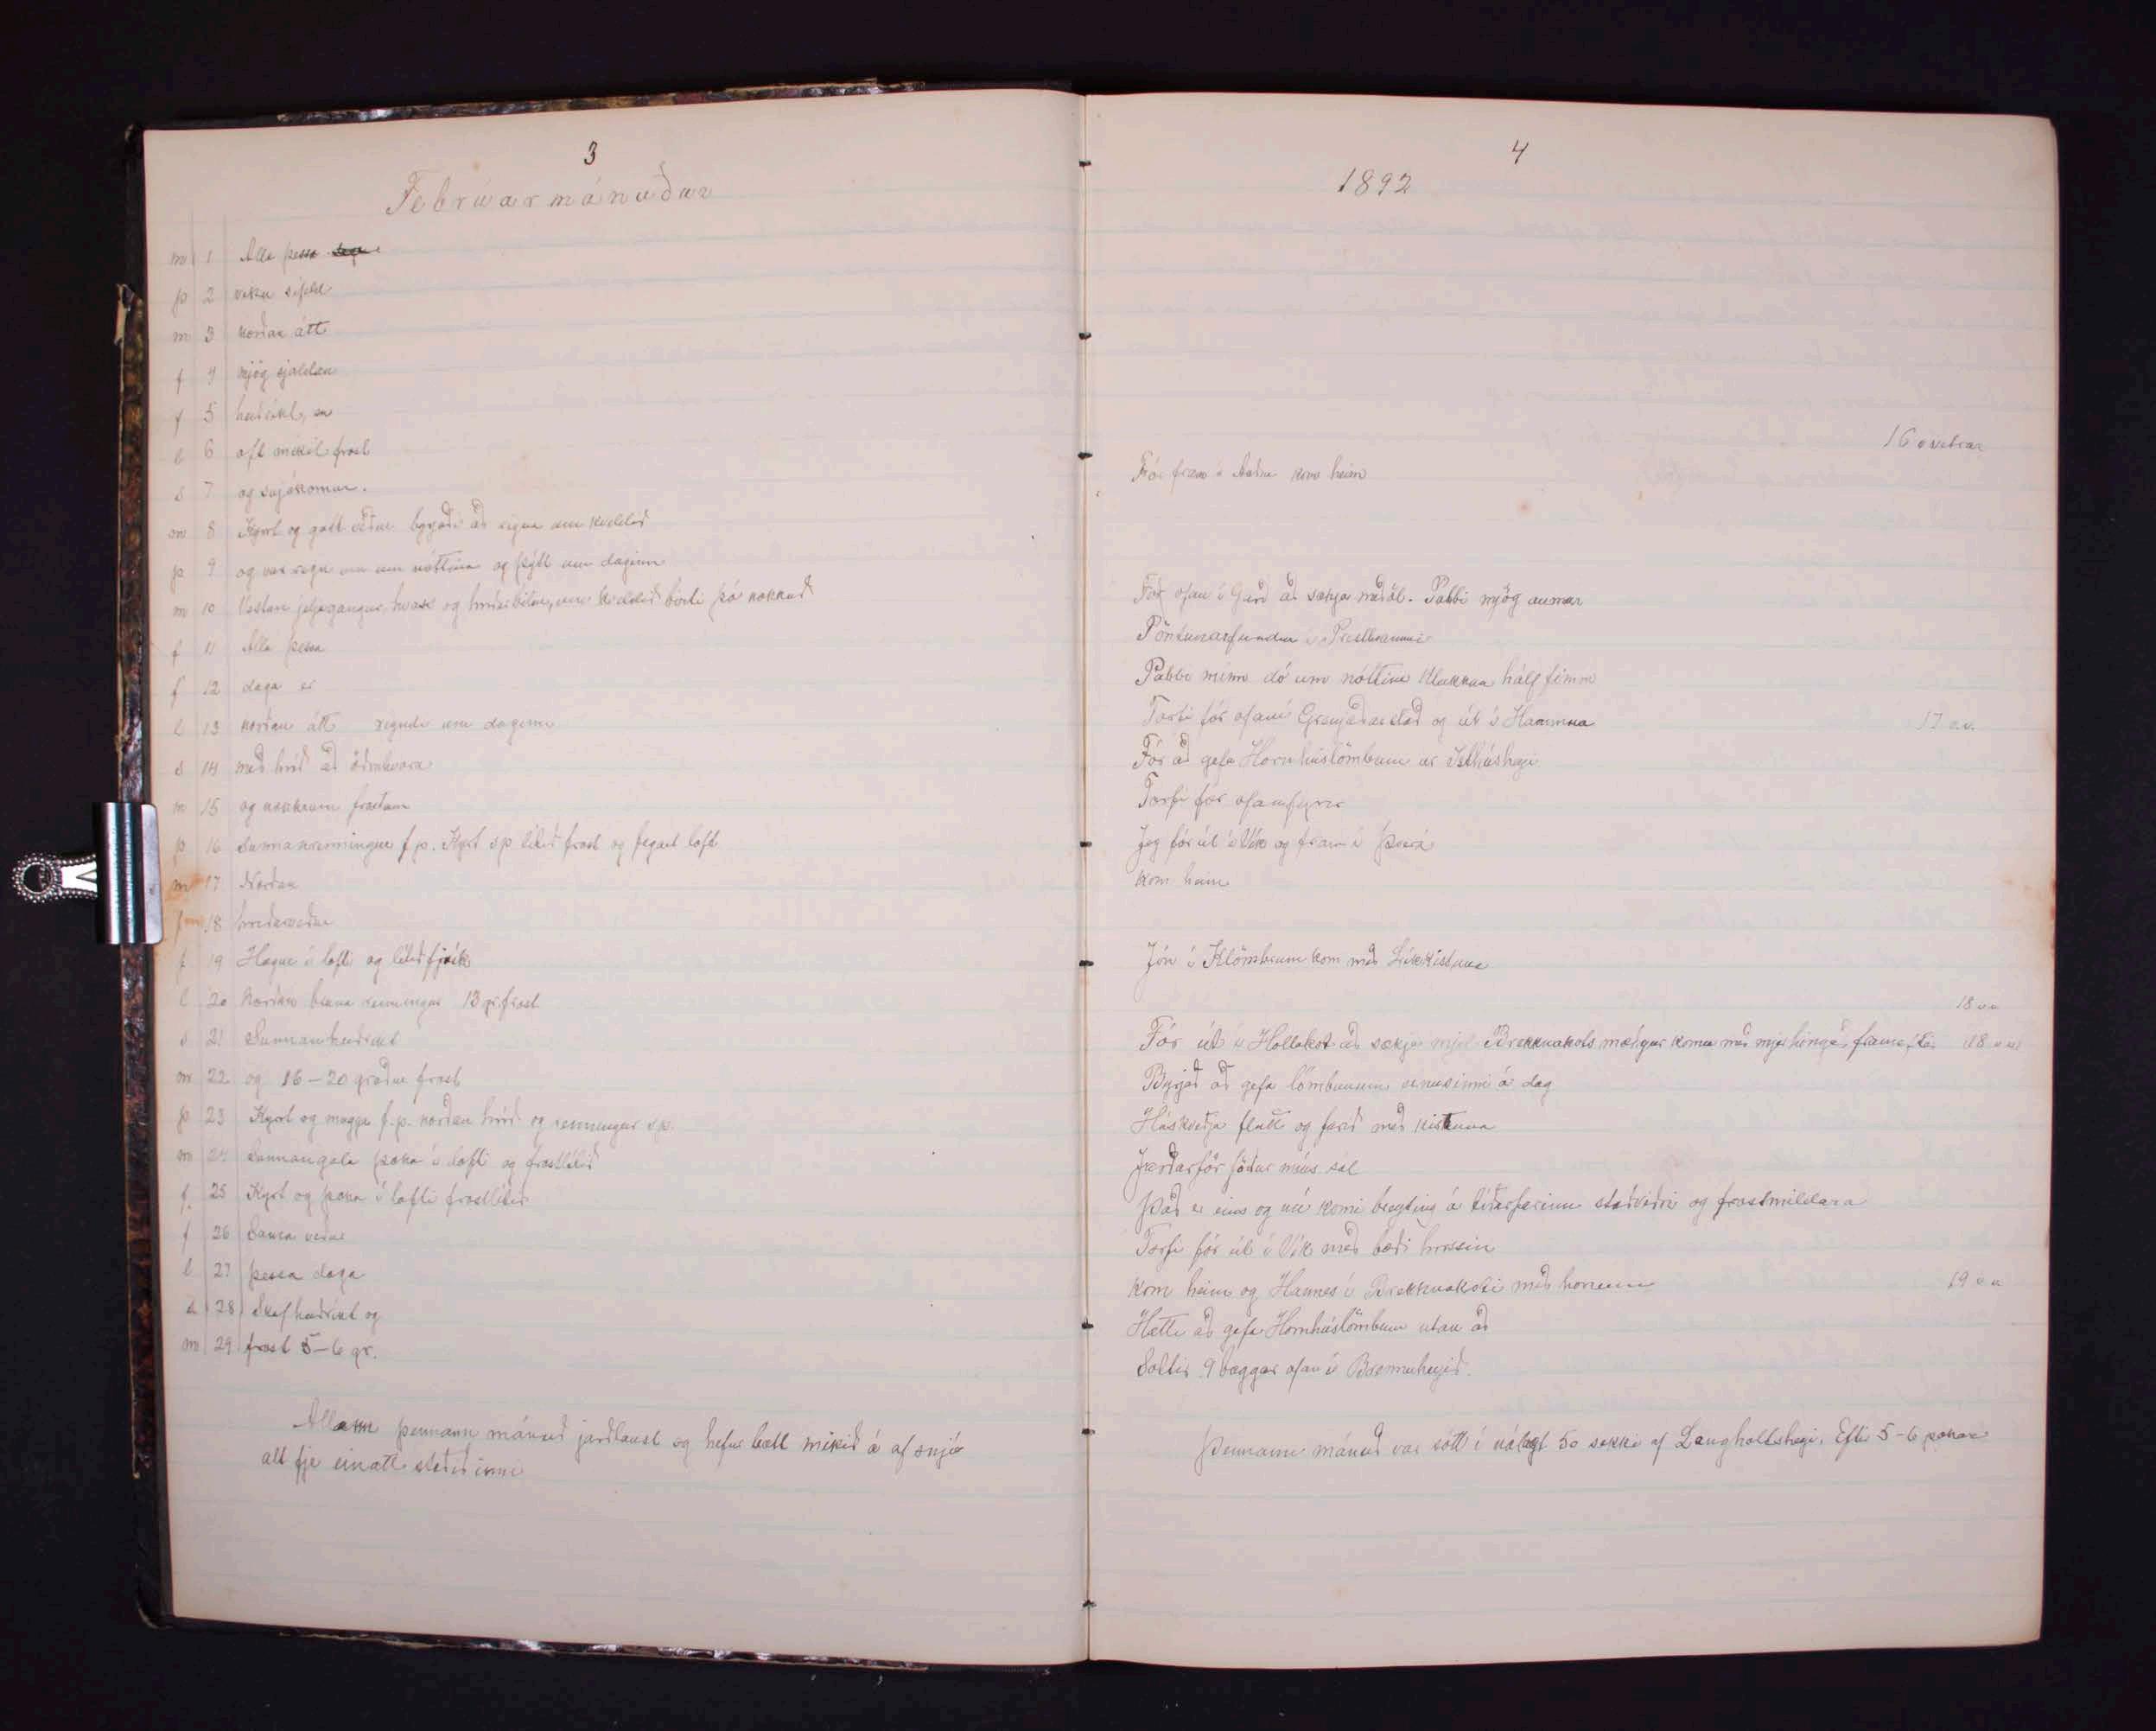 3
Febrúarmánuður
m 1 Alla þessa
þ 2 viku sífeld
m 3 norðan átt
f 4 mjög sjaldan
f 5 heiðríkt, en
l 6 oft mikil frost
s 7 og snjókomur.
m 8 Kyrt og gott veður byrjaði að rigna um kveldið
þ 9 og var regn um nóttina og þýtt um daginn
m 10 Vestan jeljagangur, hvast og hríðarbitur, um kveldið birti þó nokkuð
f 11 Alla þessa
f 12 daga er
l 13 norðan átt rigndi um daginn
s 14 með hríð að öðruhvoru
m 15 og nokkrum frostum
þ 16 Sunnanrenningur f.p. Kyrt sp lítið frost og fagurt loft
m 17 Norðan
fm 18 hríðarveður
f 19 Hægur í lofti og lítið fjúk
l 20 Norðan bruna renningur 13 gr. frost
s 21 Sunnanheiðríkt
m 22 og 16-20 graður frost
þ 23 Kyrt og mugga f.p. norðan hríð og renningur s.p.
m 24 Sunnangola þoka í lofti og frostlítið
f. 25 Kyrt og þoka í lofti frostlítið
f 26 Sama veður
l 27 þessa daga
s 28 Skafheiðríkt og
m 29 frost 5-6 gr.
Allann þennann mánuð jarðlaust og hefur bætt mikið á af snjó
alt fje einatt staðið inni
4
1892
16
Fór fram í kom heim
Fór ofan í Garð að sækja meðöl. Pabbi mjög aumur
Pöntunarfundur í Presthvammi
Pabbi minn dó um nóttina klukkan hálf fimm
Torfi fór ofaní Grenjaðarstað og út í Hamma
17 v.v.
Fór að gefa Hornhúslömbum úr Selhúsheyi
Torfi fór ofanfyrir
Jeg fór út í Vík og fram í Þverá
kom heim
Jón í Klömbrum kom með Líkkistuna
18 v.v
Fór út í Hollakot að sækja mjöl Brekknakots mæðgur komu með mjer hingað frameftir 18 v.v.
Byrjað að gefa lömbunum einusinni á dag
Húskveðja flutt og farið með kistuna
Jarðarför föður míns sál
Það er eins og nú komi breyting á tíðarfarinu staðviðri og frostmildara
Torfi fór út í Vík með bæði hrossin
kom heim og Hannes í Brekknakoti með honum
19 v.v
Hætti að gefa Hornhúslömbum utan að
Sóttir 9 baggar ofan í Brennuheyið.
Þennann mánuð var sótt í nálægt 50 sekki af Langholtsheyi. Eftir 5-6 pokar